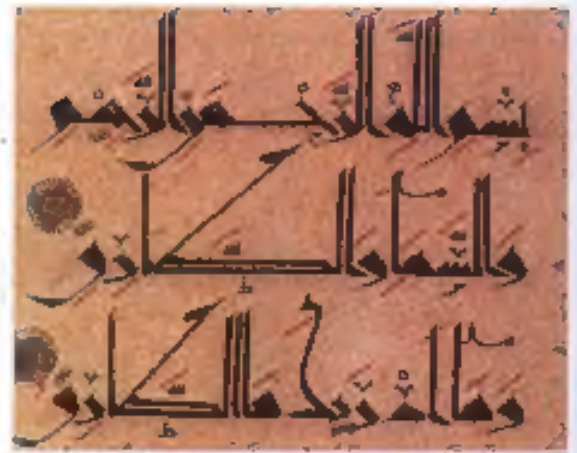 بِسْمِ اللَّهِ الرَّحْمَٰنِ الرَّحِيمِ
وَالسَّمَاءِ وَالطَّارِقِ
وَمَا أَدْرَاكَ مَا الطَّارِقُ